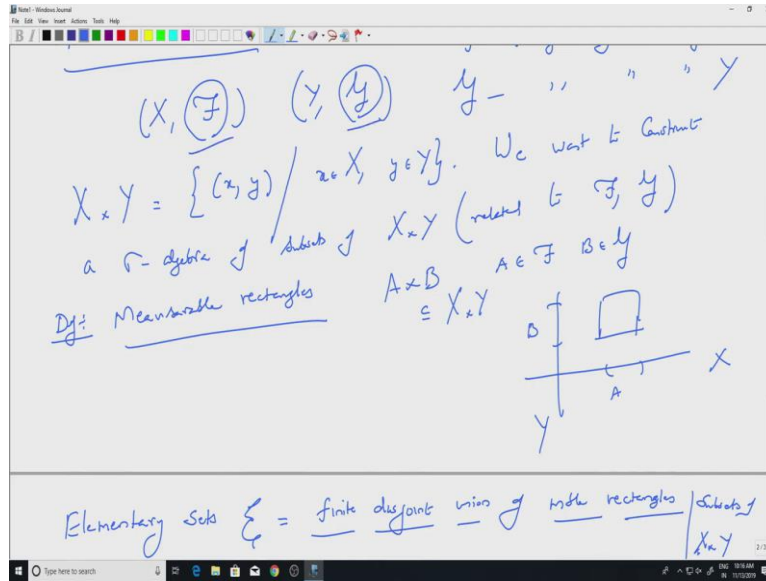 Note1 - Windows Journal
File Edit View Insert Actions Tools Help
B I
(X, ℱ) (Y, 𝒢) 𝒢 - ,, ,, ,, Y
X × Y = { (x, y) / x ∈ X, y ∈ Y}. We want to Construct
a σ-algebra of subsets of X × Y (related to ℱ, 𝒢)
Def: Measurable rectangles A × B ⊆ X × Y A ∈ ℱ B ∈ 𝒢
B
X
A
Y
Elementary Sets ξ = finite disjoint union of mble rectangles | Subsets of
X × Y
2/3
Type here to search
ENG 10:16 AM
IN 11/13/2019